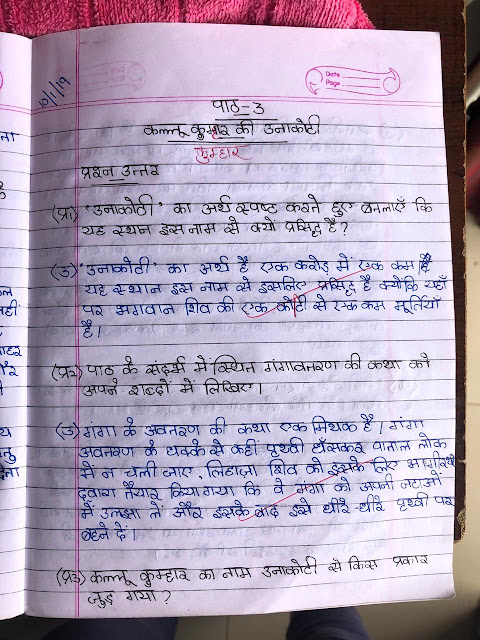 10/1/19
Date
Page
पाठ-3
कल्लू कुम्हार की उनाकोटी
कुम्हार
प्रश्न उत्तर
(प्र1) 'उनाकोटी' का अर्थ स्पष्ट करते हुए बतलाएँ कि
यह स्थान इस नाम से क्यों प्रसिद्ध है?
(उ) 'उनाकोटी' का अर्थ है एक करोड़ में एक कम है
यह स्थान इस नाम से इसलिए प्रसिद्ध है क्योंकि यहाँ
पर भगवान शिव की एक कोटी से एक कम मूर्तियाँ
हैं।
(प्र2) पाठ के संदर्भ में स्थित गंगावतरण की कथा को
अपने शब्दों में लिखिए।
(उ) गंगा के अवतरण की कथा एक मिथक है। गंगा
अवतरण के धक्के से कहीं पृथ्वी धँसकर पाताल लोक
में न चली जाए, लिहाज़ा शिव को इसके लिए
द्वारा तैयार किया गया कि वे गंगा को अपनी जटाओं
में उलझा लें और इसके बाद इसे धीरे-धीरे पृथ्वी पर
बहने दें।
(प्र3) कल्लू कुम्हार का नाम उनाकोटी से किस प्रकार
जुड़ गया?